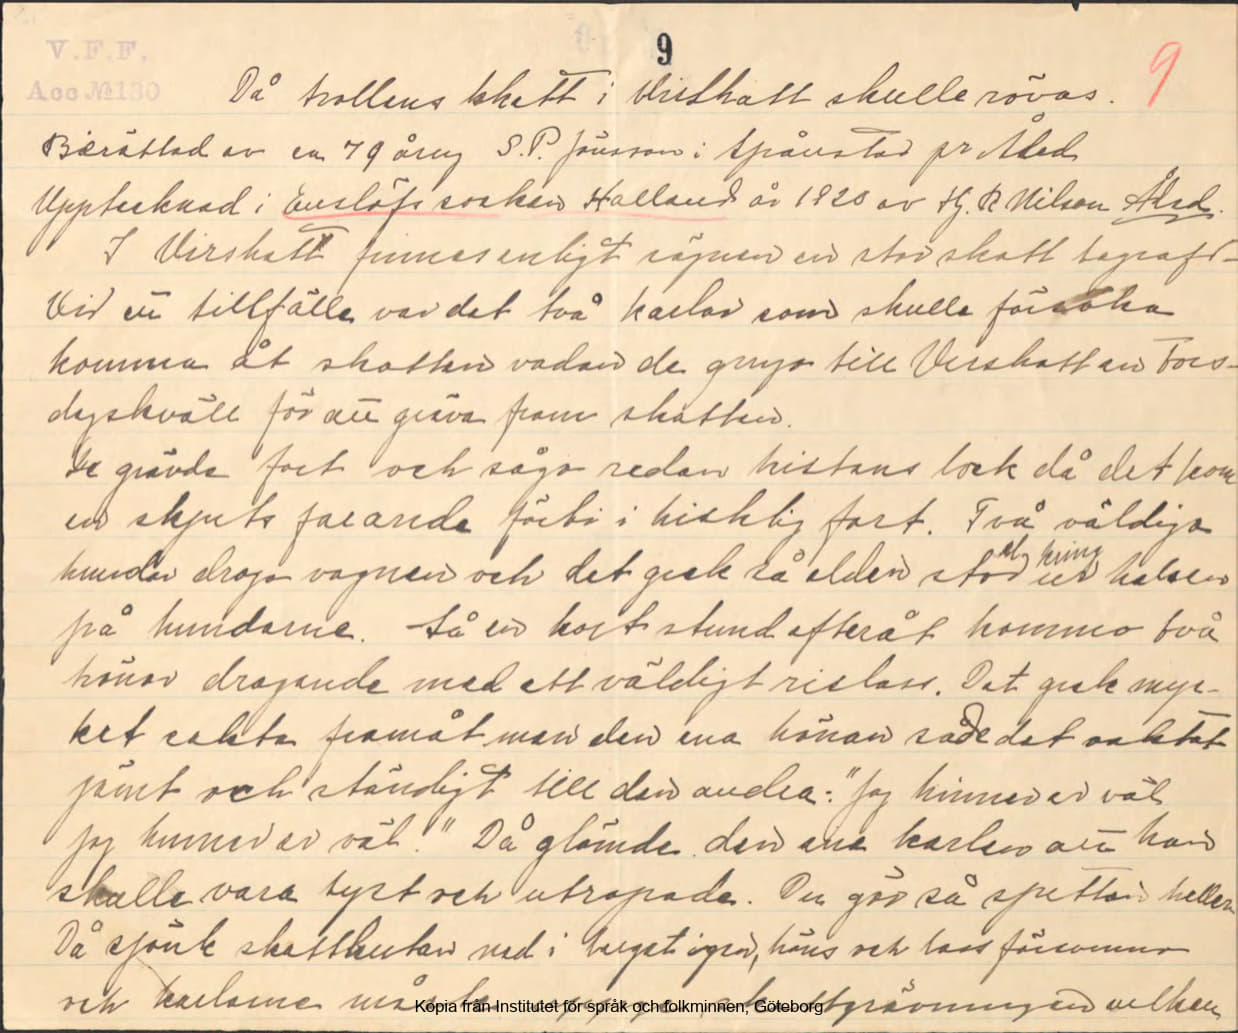 9
V.F.F.
Acc №130
9
Då trollens skatt i Virshatt skulle rövas.
Berättad av en 79 åring S.P. Jönsson i Spånstad pr Åled
Upptecknad i Enslöfs socken Halland år 1928 av Hj. R Nilson Åled.
I Virshatt finnes enligt sägnen en stor skatt
Vid ett tillfälle var det två karlar som skulle försöka
komma åt skatten vadan de gingo till Virshatt en Tors-
dagskväll för att gräva fram skatten.
De grävde fort och sågo redan kistans lock då det kom
en skjuts farande förbi i hisklig fart. Två väldiga
hundar drogo vagnen och det gick så elden stod kring halsen
på hundarne. Så en kort stund efteråt kommo två
hönor dragande med ett väldigt rislass. Det gick myc-
ket sakta framåt men den ena hönan sade det oaktat
jämt och ständigt till den andra: "Jag hinner er väl
jag hinner er väl." Då glömde den ena karlen att han
skulle vara tyst och utropade. Du gör så spetten heller
Då sjönk skattkistan ned i berget igen, höns och lass försvunno
och karlarne skattgrävningen vilken
Kopia från Institutet för språk och folkminnen, Göteborg